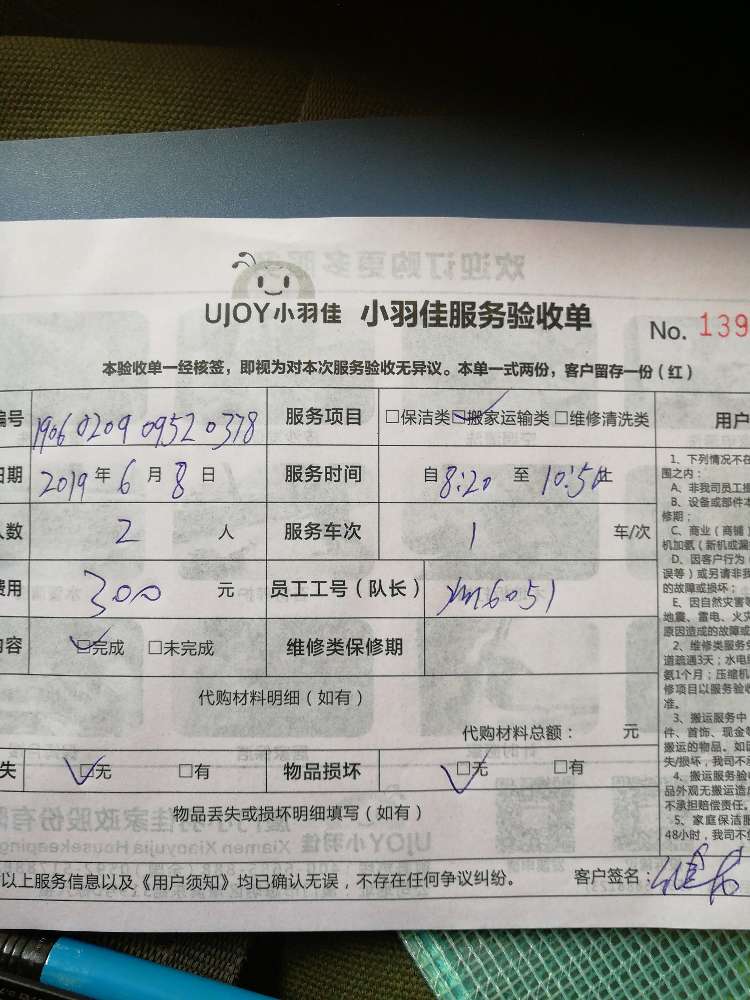 UJOY小羽佳 小羽佳服务验收单 No. 139
本验收单一经核签，即视为对本次服务验收无异议。本单一式两份，客户留存一份（红）
编号 1906 0209 0952 0378 服务项目 □保洁类 ☑搬家运输类 □维修清洗类 用户
日期 2019 年 6 月 8 日 服务时间 自 8:20 至 10:50 止
人数 2 人 服务车次 1 车/次
费用 300 元 员工工号（队长） xm6051
内容 ☑完成 □未完成 维修类保修期
代购材料明细（如有）
代购材料总额： 元
失 ☑无 □有 物品损坏 ☑无 □有
物品丢失或损坏明细填写（如有）
以上服务信息以及《用户须知》均已确认无误，不存在任何争议纠纷。 客户签名：
1、下列情况不在
围之内：
A、非我司员工操
B、设备或部件本
修期；
C、商业（商铺）
机加氨（新机或漏
D、因客户行为（
误等）或另请非我
的故障或损坏；
E、因自然灾害等
地震、雷电、火灾
原因造成的故障或
2、维修类服务务
道疏通3天；水电
氨1个月；压缩机
修项目以服务验收
准。
3、搬运服务中
件、首饰、现金等
搬运的物品。如
失/损坏，我司不承
4、搬运服务验收
品外观无搬运造成
不承担赔偿责任。
5、家庭保洁服
48小时，我司不负